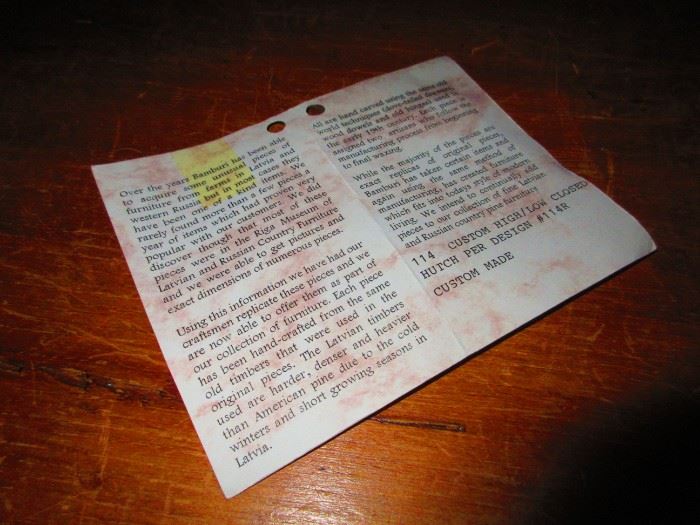 Over the years Bamburi has been able
to acquire some unusual pieces of
furniture from farms in Latvia and
western Russia but in most cases they
have been one of a kind items. We
rarely found more than a few pieces a
year of items which had proven very
popular with our customers. We did
discover though that most of these
pieces were in the Riga Museum of
Latvian and Russian Country Furniture
and we were able to get pictures and
exact dimensions of numerous pieces.
Using this information we have had our
craftsmen replicate these pieces and we
are now able to offer them as part of
our collection of furniture. Each piece
has been hand-crafted from the same
old timbers that were used in the
original pieces. The Latvian timbers
used are harder, denser and heavier
than American pine due to the cold
winters and short growing seasons in
Latvia.
All are hand carved using the same old
world techniques (dove-tailed drawers,
wood dowels and old hinges) used in
the early 19th century. Each piece is
assigned two artisans who follow the
manufacturing process from beginning
to final waxing.
While the majority of the pieces are
exact replicas of original pieces,
Bamburi has taken certain items and
again using the same method of
manufacturing, has created furniture
which fits into todays style of modern
living. We intend to continually add
pieces to our collection of fine Latvian
and Russian country pine furniture
114 CUSTOM HIGH/LOW CLOSED
HUTCH PER DESIGN #114R
CUSTOM MADE